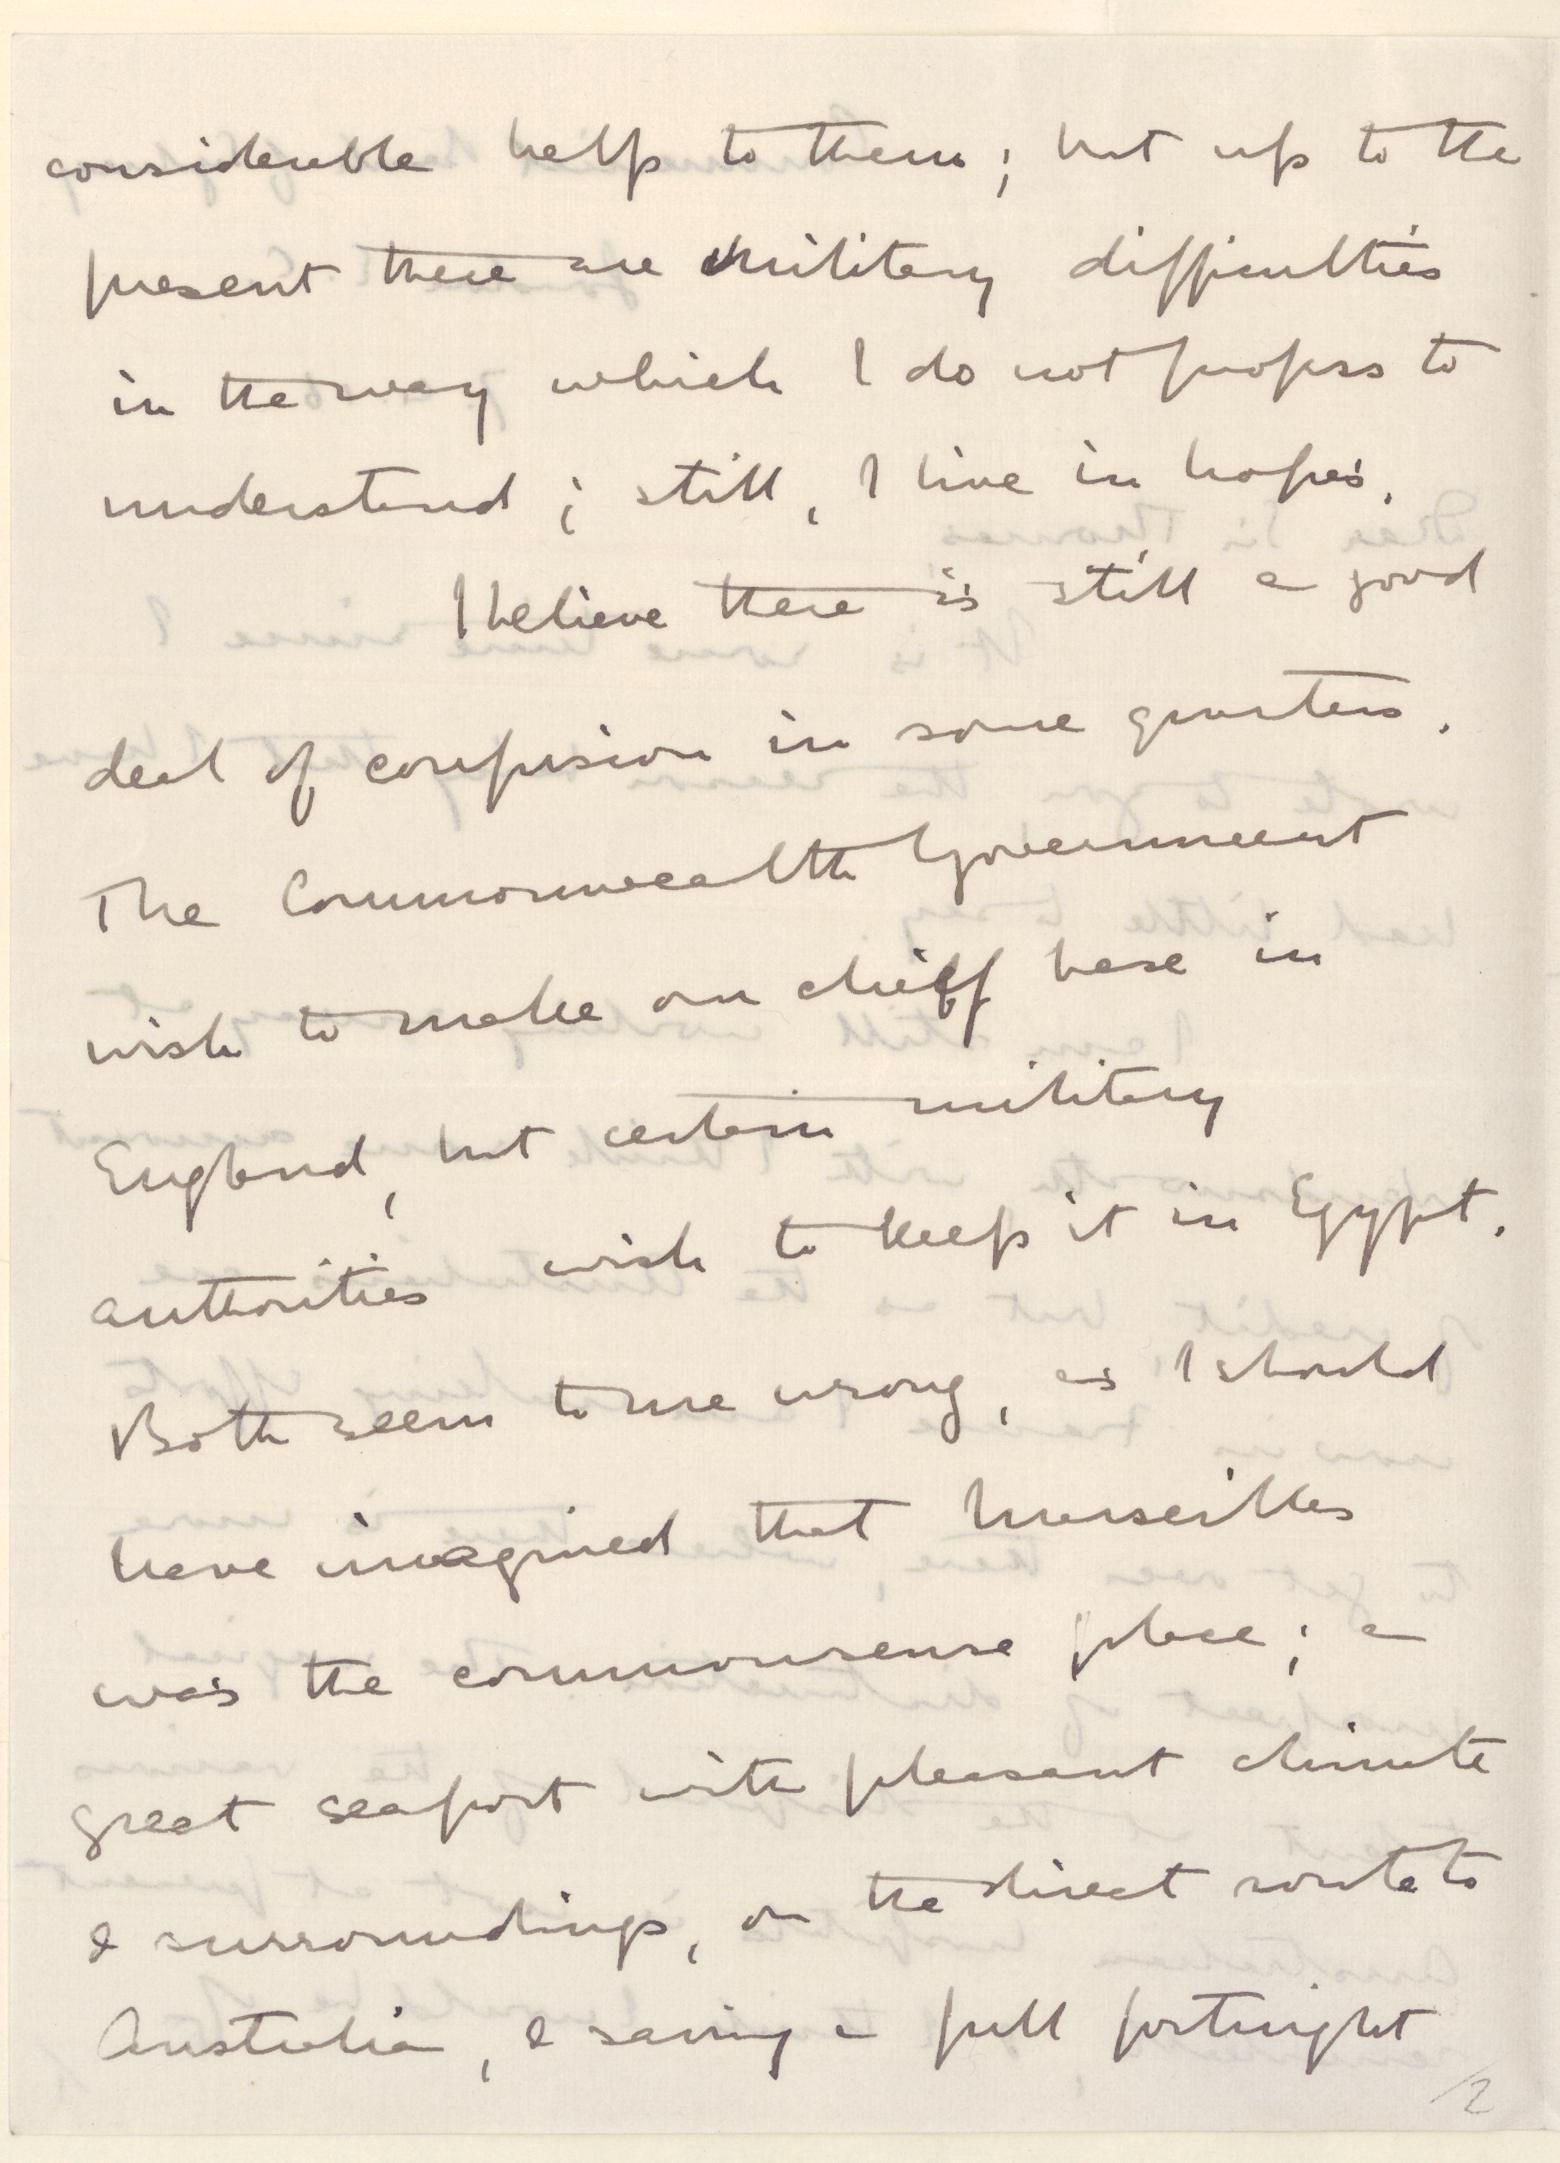 considerable help to them; but up to the
present there are military difficulties
in the way which I do not profess to
understand; still, I live in hopes.
I believe there is still a good
deal of confusion in some quarters.
The Commonwealth Government
wish to make our chief base in
England, but certain military
authorities wish to keep it in Egypt.
Both seem to me wrong, as I should
have imagined that Marseilles
was the commonsense place; a
great seaport with pleasant climate
& surroundings, on the direct route to
Australia, & saving a full fortnight
/2